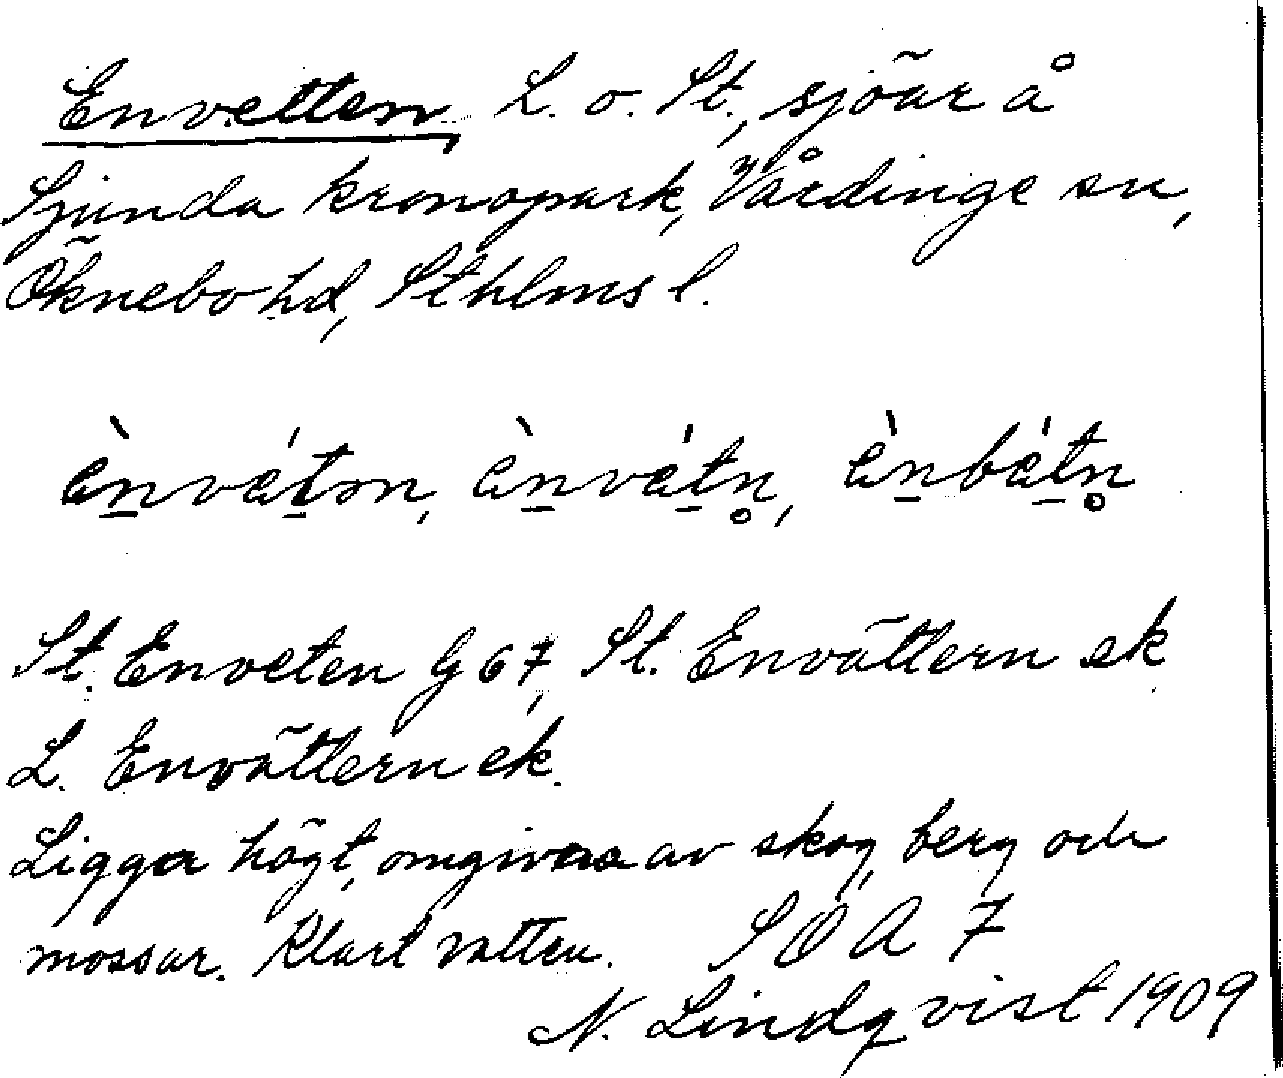 Envetten, L. o. St., sjöar å
Sjunda kronopark, Vårdinge sn,
Öknebo hd, Sthlms l.
ὲn̲vét̲ɘn, ὲn̲vét̲n̥, ὲn̲bét̲n̥
St. Enveten G 67, St. Envättern ek
L. Envättern ek.
Ligga högt, omgivas av skog, berg och
mossar. Klart vatten. SOA 7
N. Lindqvist 1909